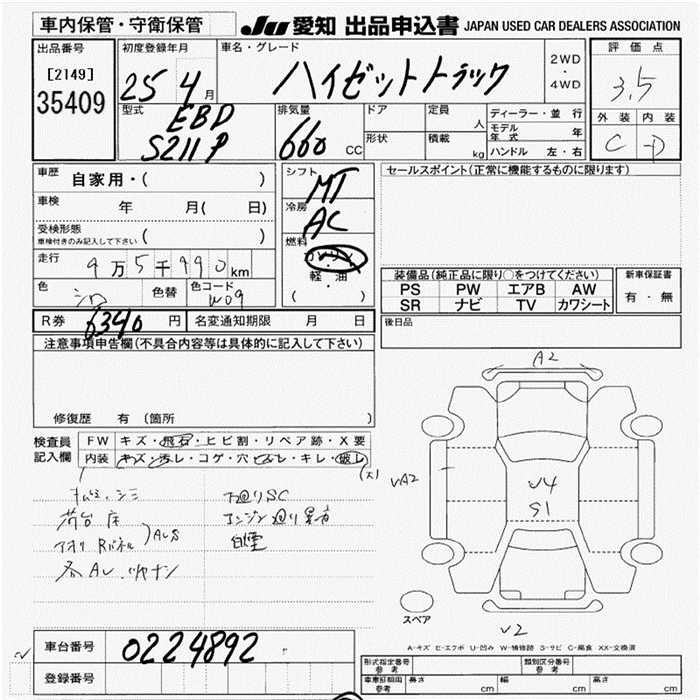 車内保管・守衛保管
JU 愛知 出品申込書 JAPAN USED CAR DEALERS ASSOCIATION
出品番号 初度登録年月 車名・グレード 評価点
[2149]
35409
25 4月 ハイゼットトラック 2WD・4WD 3.5
型式 排気量 ドア 定員 人 ディーラー・並行 外装 内装
EBD
S211P 660 CC 形状 積載 kg モデル年式 年 C D
ハンドル 左・右
車歴 自家用・( )
シフト MT
セールスポイント(正常に機能するものに限ります)
車検 年 月( 日)
冷房 AC
受検形態
車検付きのみ記入して下さい ( )
燃料 ガソリン
軽・油
( )
走行 9万5千990km
色 シロ 色替 色コード W09
装備品(純正品に限り○をつけてください) 新車保証書
PS PW エアB AW 有・無
SR ナビ TV カワシート
R券 6340円 名変通知期限 月 日
後日品
注意事項申告欄(不具合内容等は具体的に記入して下さい)
修復歴 有(箇所 )
検査員記入欄 FW キズ・飛石・ヒビ割・リペア跡・X要
内装 キズ・汚レ・コゲ・穴・ビスレ・キレ・破レ
(大)
下廻りSC
荷台床 エンジン廻り異音
アオリ Rパネル AUS 白煙
A2
UA2
U4
S1
U2
スペア
A-キズ E-エクボ U-凹み W-補修跡 S-サビ C-腐食 XX-交換済
車台番号 0224892
登録番号
形式指定番号 参考 類別区分番号 参考
車両詳細用 参考 長さ cm 幅 cm 高さ cm